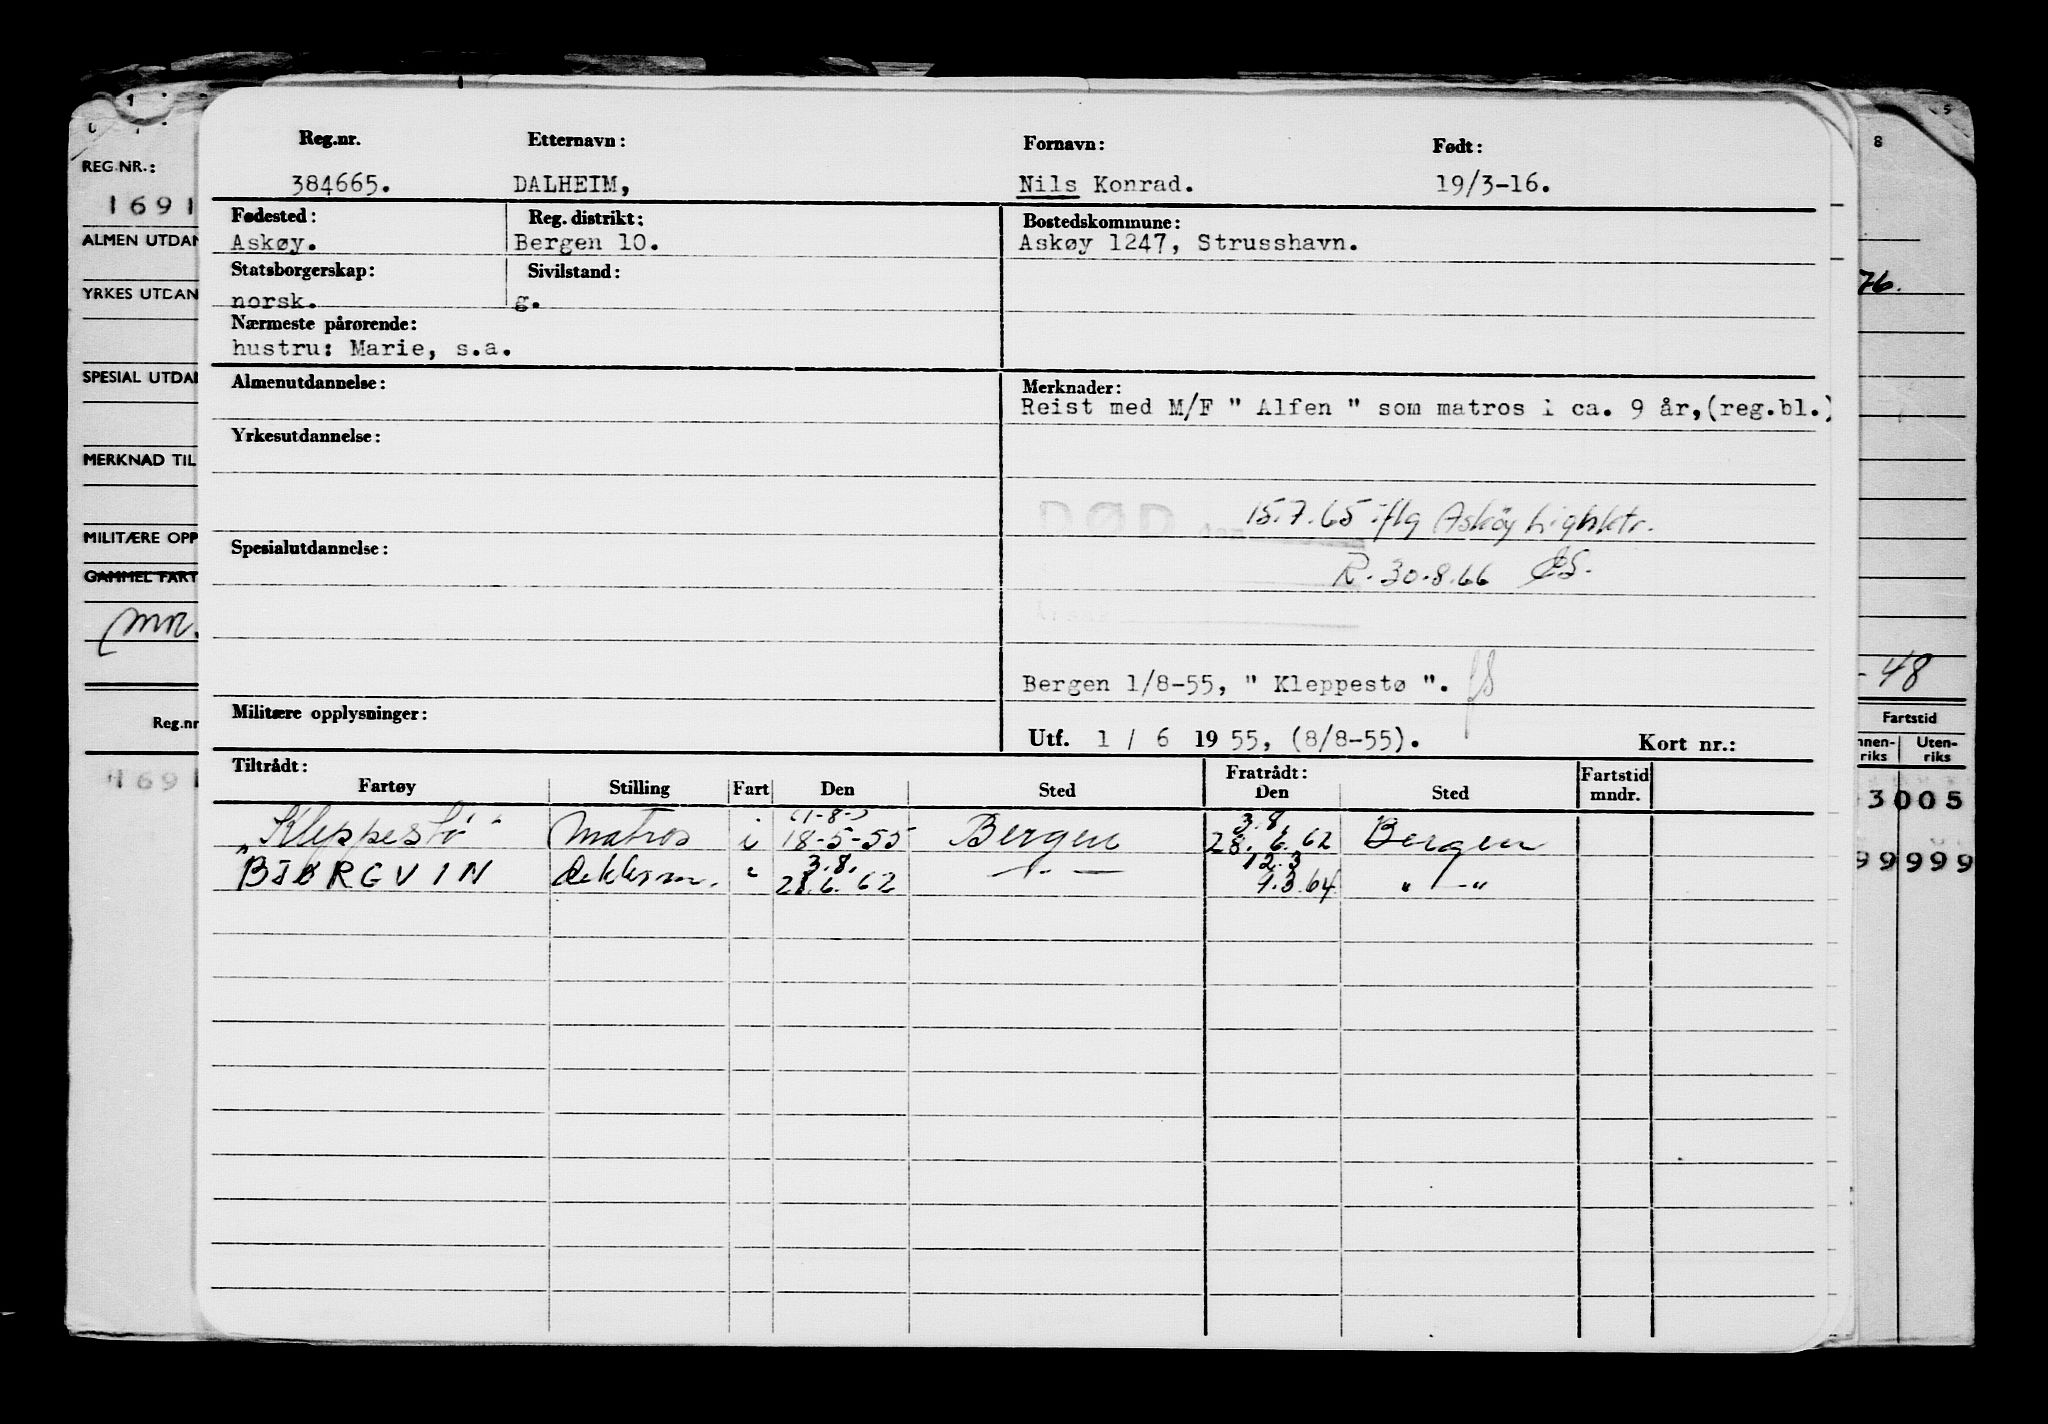 Reg.nr. Etternavn: Fornavn: Født:
384665. DALHEIM, Nils Konrad. 19/3-16.
Fødested: Reg. distrikt: Bostedskommune:
Askøy. Bergen 10. Askøy 1247, Strusshavn.
Statsborgerskap: Sivilstand:
norsk. g.
Nærmeste pårørende:
hustru: Marie, s.a.
Almenutdannelse: Merknader:
Reist med M/F " Alfen " som matros i ca. 9 år,(reg.bl.)
Yrkesutdannelse:
DØD 15.7.65 iflg Askøy
Spesialutdannelse:
R. 30.8.66
Bergen 1/8-55, " Kleppestø ".
Militære opplysninger:
Utf. 1 / 6 19 55, (8/8-55). Kort nr.:
Tiltrådt: Fratrådt: Fartstid
Fartøy Stilling Fart Den Sted Den Sted mndr.
(1-8-) 3.8.
"Kleppestø" Matros i 18-5-55 Bergen 28.6.62 Bergen
3.8. 12.3
BJØRGVIN dekksm. " 28.6.62 — " — 9.3.64 " — "
REG.NR.:
1691
ALMEN UTDAN
YRKES UTDAN
SPESIAL UTDAN
MERKNAD TIL
MILITÆRE OPP
GAMMEL FART
Reg.nr
1691
8
5
76.
- 48
Fartstid
nnen- Uten-
riks riks
3005
99999